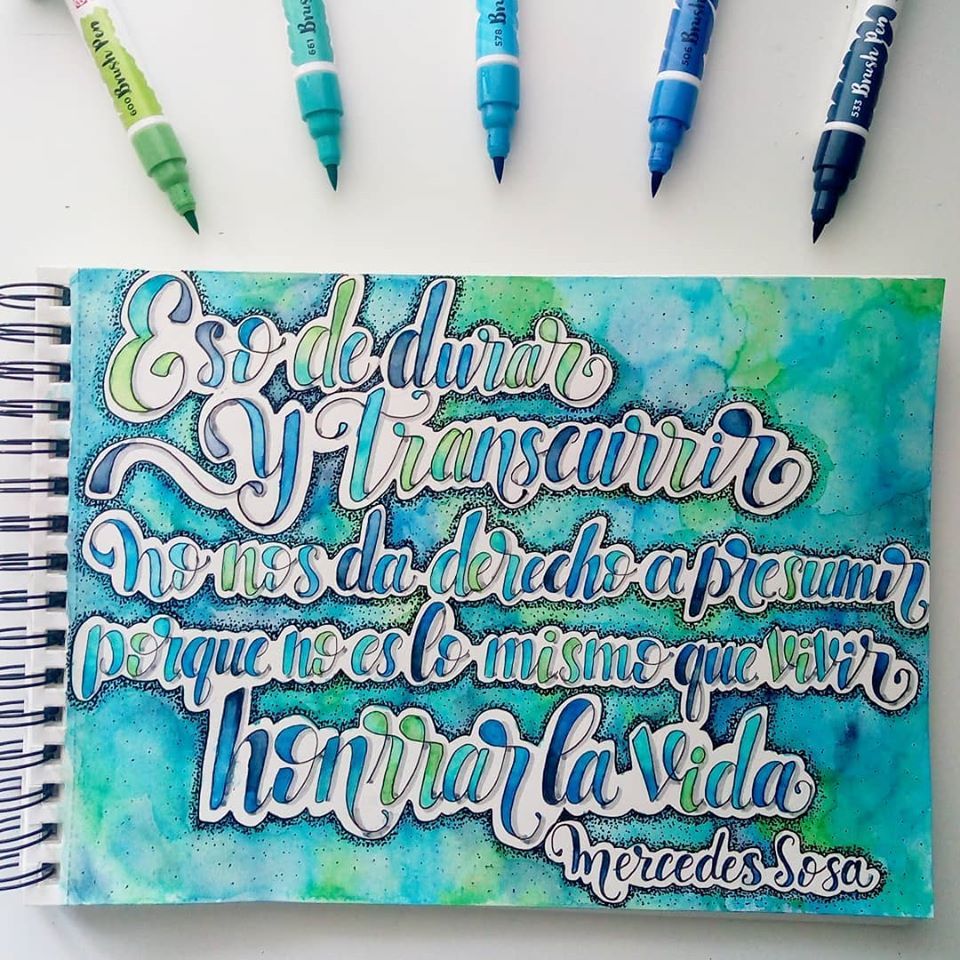 600 Brush Pen
661 Brush
578 Brush
506 Brush
533 Brush Pen
Eso de durar
Y transcurrir
no nos da derecho a presumir
porque no es lo mismo que vivir
honrrar la vida
Mercedes Sosa